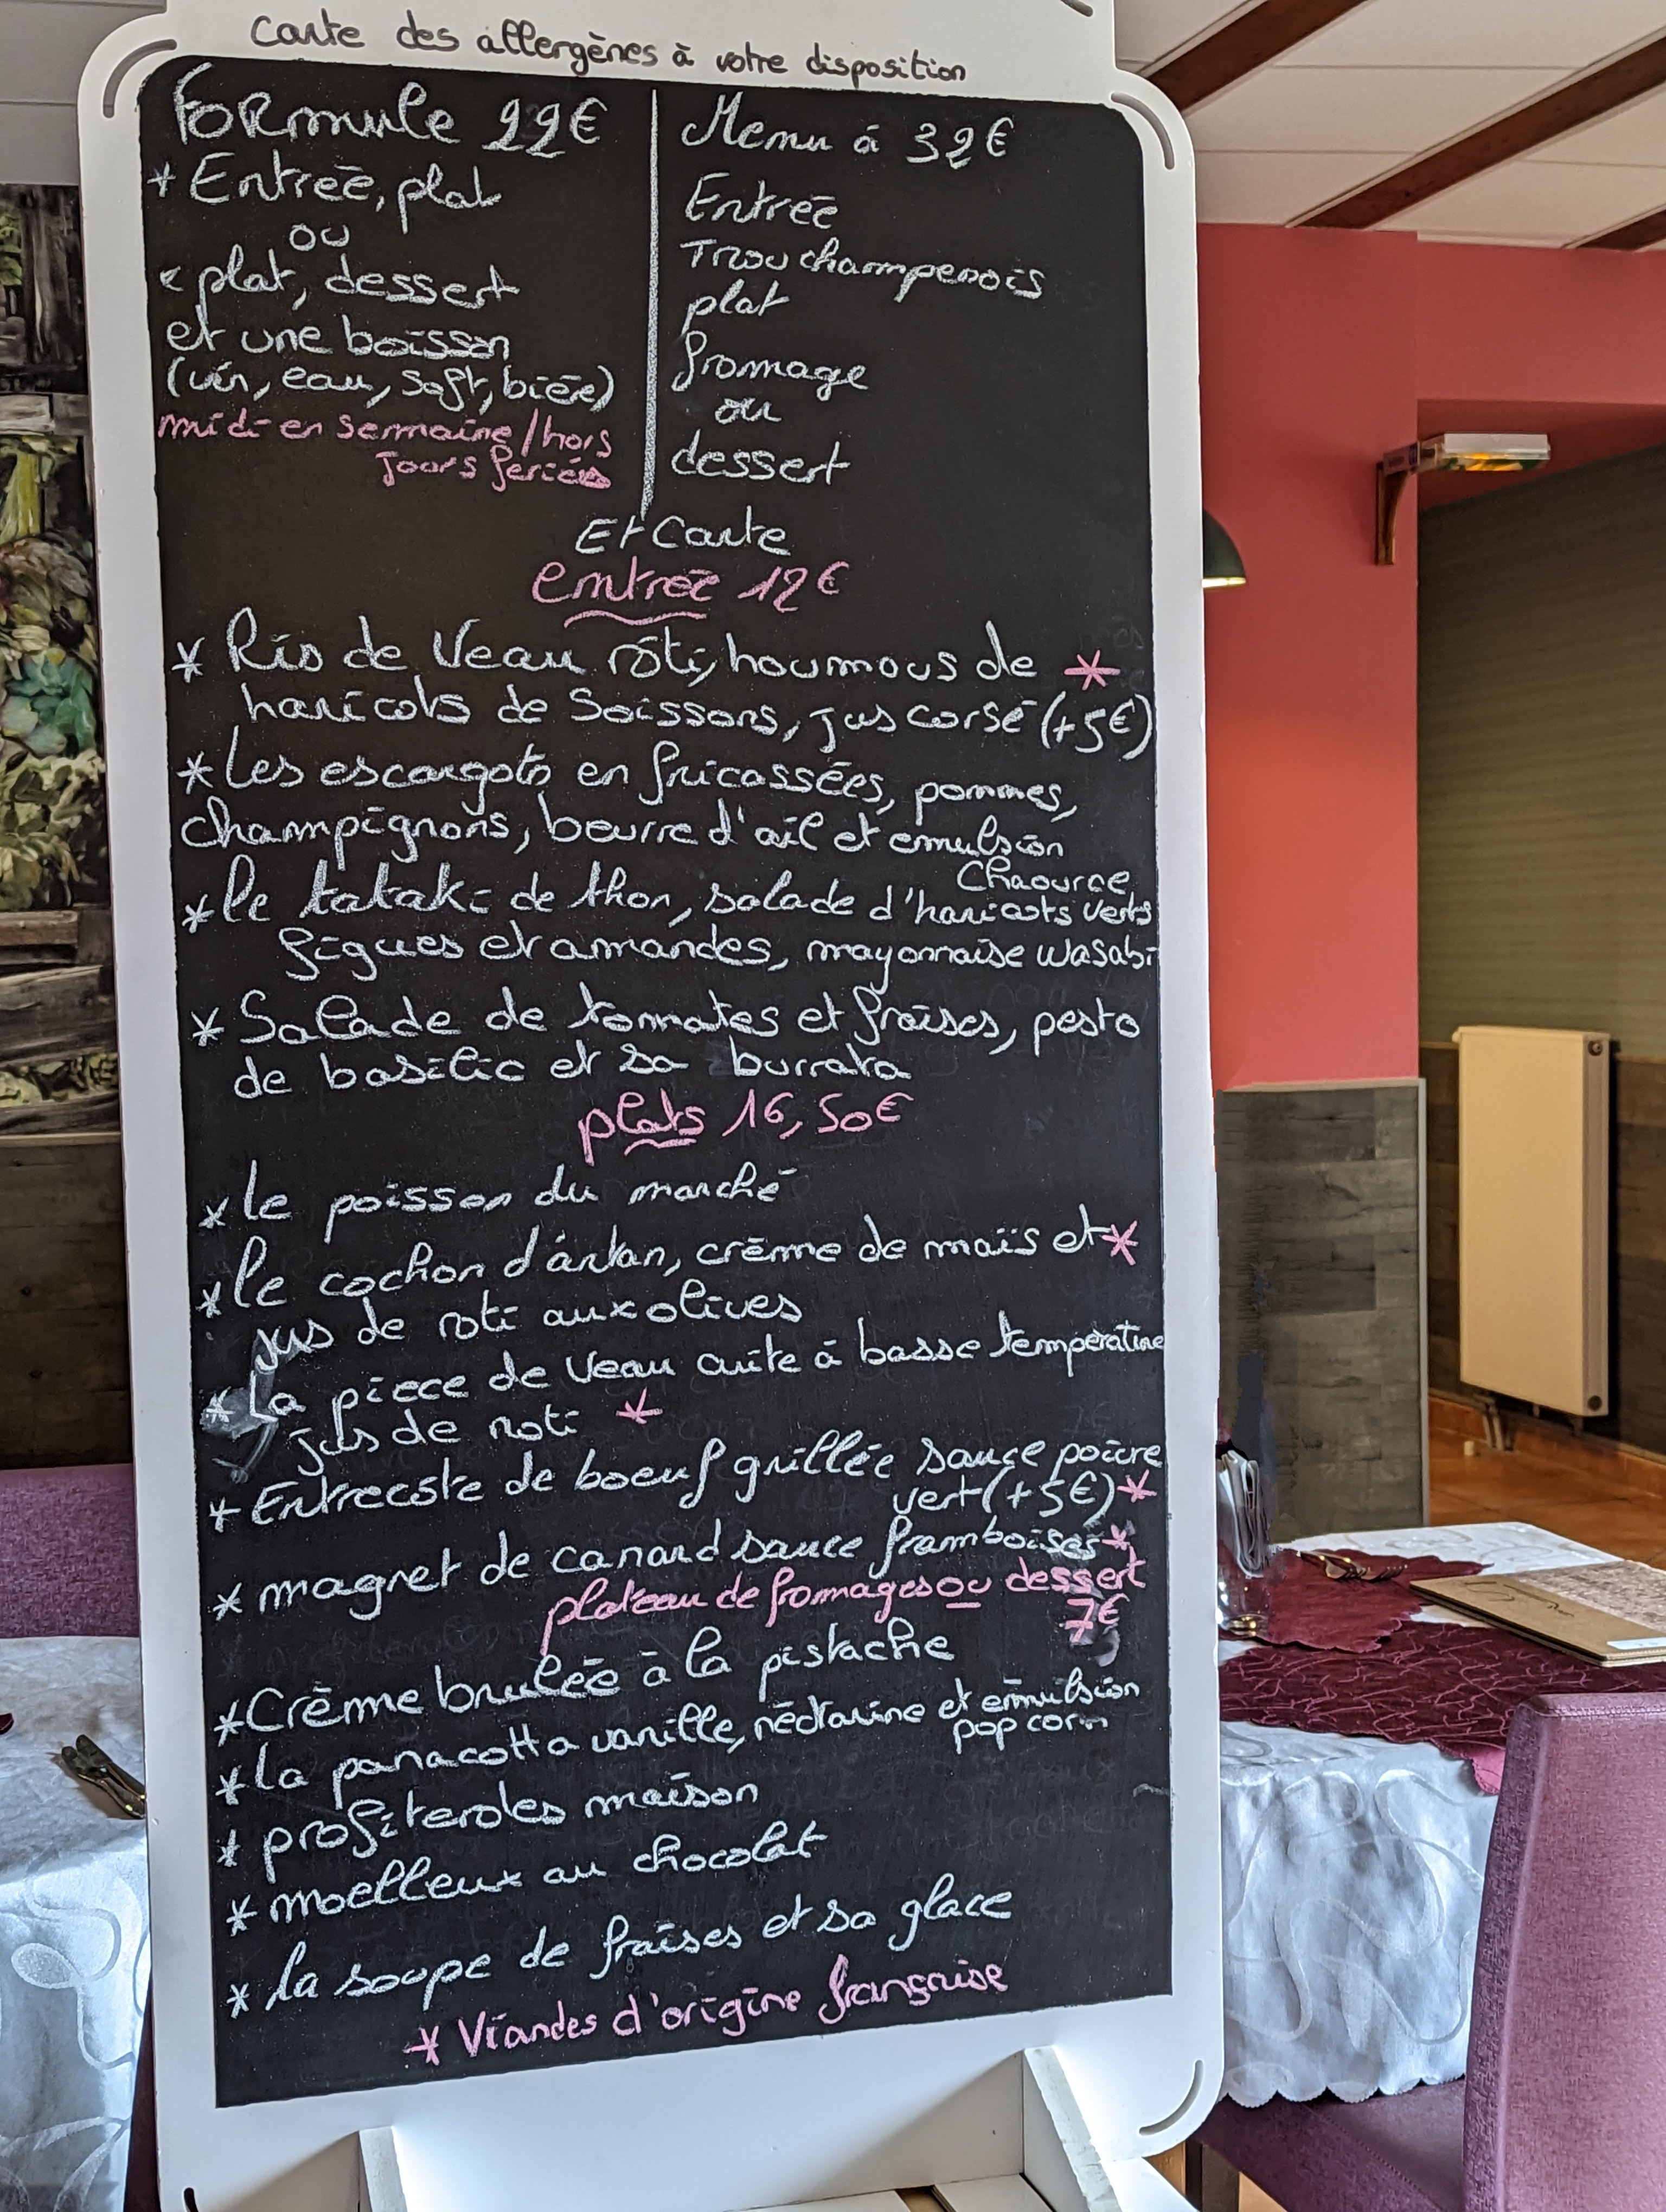 Carte des allergènes à votre disposition
Formule 22€
+ Entrée, plat
ou
plat, dessert
et une boisson
(vin, eau, soft, bière)
midi en semaine/hors
Jours feriés
Menu à 32€
Entrée
Trou champenois
plat
fromage
ou
dessert
Et Carte
entrée 12€
* Ris de Veau rôti, houmous de *
haricots de Soissons, jus corsé (+5€)
* Les escargots en fricassées, pommes,
champignons, beurre d'ail et emulsion
Chaource
* le tataki de thon, salade d'haricots verts
figues et amandes, mayonnaise wasabi
* Salade de tomates et fraises, pesto
de basilic et sa burrata
plats 16,50€
* le poisson du marché
* le cochon d'antan, crème de maïs et *
jus de roti aux olives
* La piece de veau cuite à basse temperature
jus de roti *
* Entrecôte de boeuf grillée sauce poivre
vert (+5€) *
* magret de canard sauce framboises *
plateau de fromages ou dessert
7€
* Crème brulée à la pistache
* la panacotta vanille, nectarine et emulsion
pop corn
* profiteroles maison
* moelleux au chocolat
* la soupe de fraises et sa glace
* Viandes d'origine française